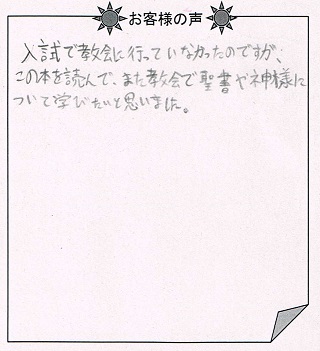 お客様の声
入試で教会に行っていなかったのですが、
この本を読んで、また教会で聖書や神様に
ついて学びたいと思いました。